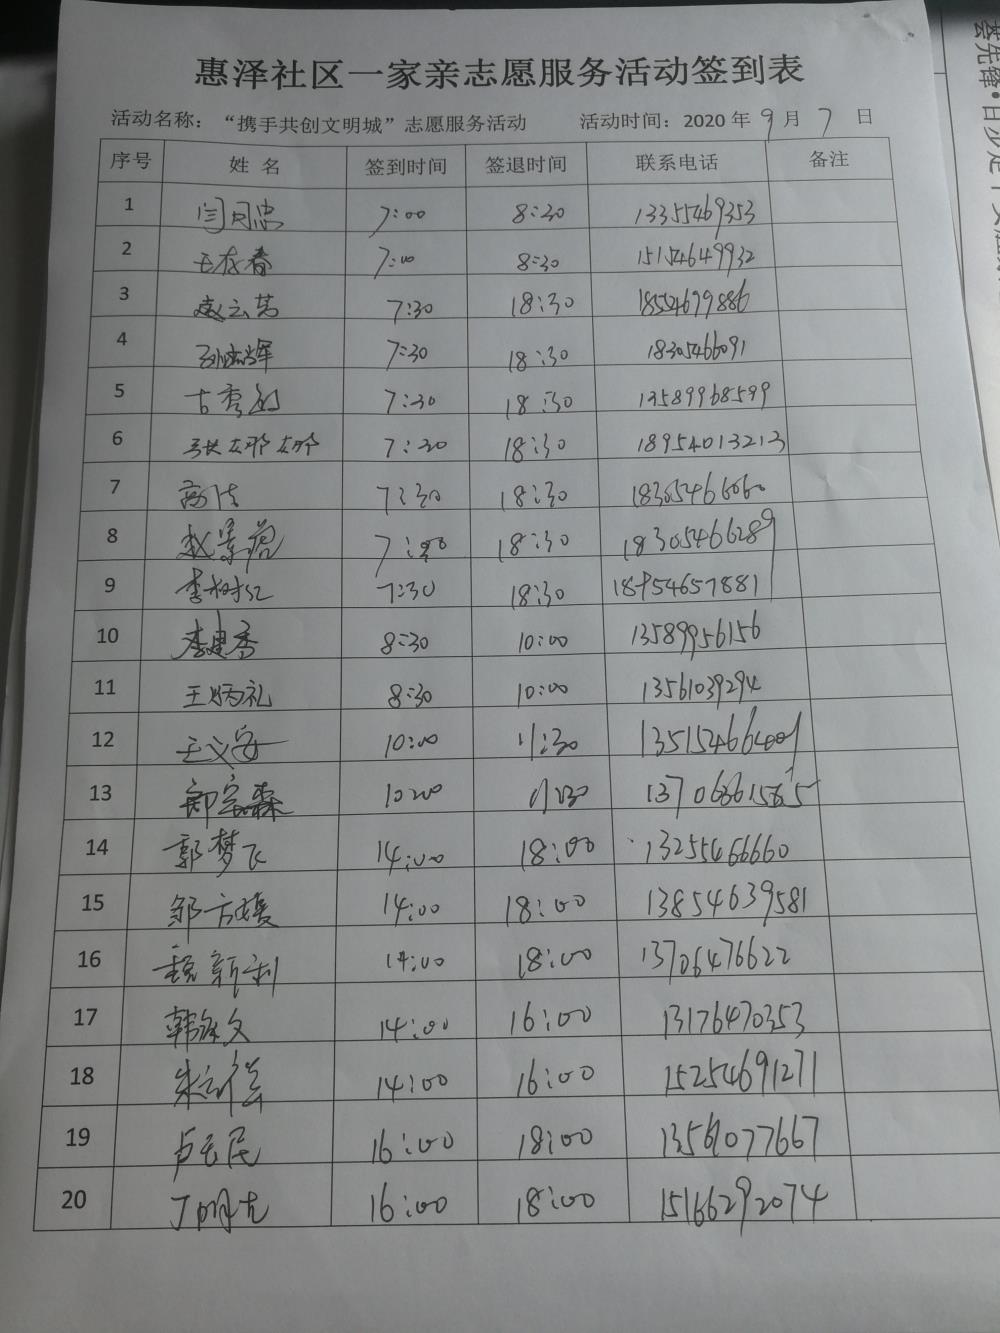 惠泽社区一家亲志愿服务活动签到表
活动名称：“携手共创文明城”志愿服务活动 活动时间：2020 年 9 月 7 日
序号 姓 名 签到时间 签退时间 联系电话 备注
1 闫同忠 7:00 8:30 13355469353
2 王友春 7:00 8:30 15154649932
3 赵云芳 7:30 18:30 18554679886
4 7:30 18:30 18305466091
5 古秀 7:30 18:30 13589968599
6 张娜娜 7:30 18:30 18954013213
7 高洁 7:30 18:30 18305466060
8 赵景 18:30 18305466289
9 李树红 7:30 18:30 18954657881
10 李建香 8:30 10:00 13589956156
11 王炳礼 8:30 10:00 13561039294
12 王义安 10:00 11:30
13 郭宝森 10:00 11:30
14 郭梦飞 14:00 18:00 13255466660
15 邹方媛 14:00 18:00 13854639581
16 魏新利 14:00 18:00 13706476622
17 韩 文 14:00 16:00 13176470353
18 朱云 14:00 16:00 15254691271
19 卢玉民 16:00 18:00 13561077667
20 丁明光 16:00 18:00 15166292074